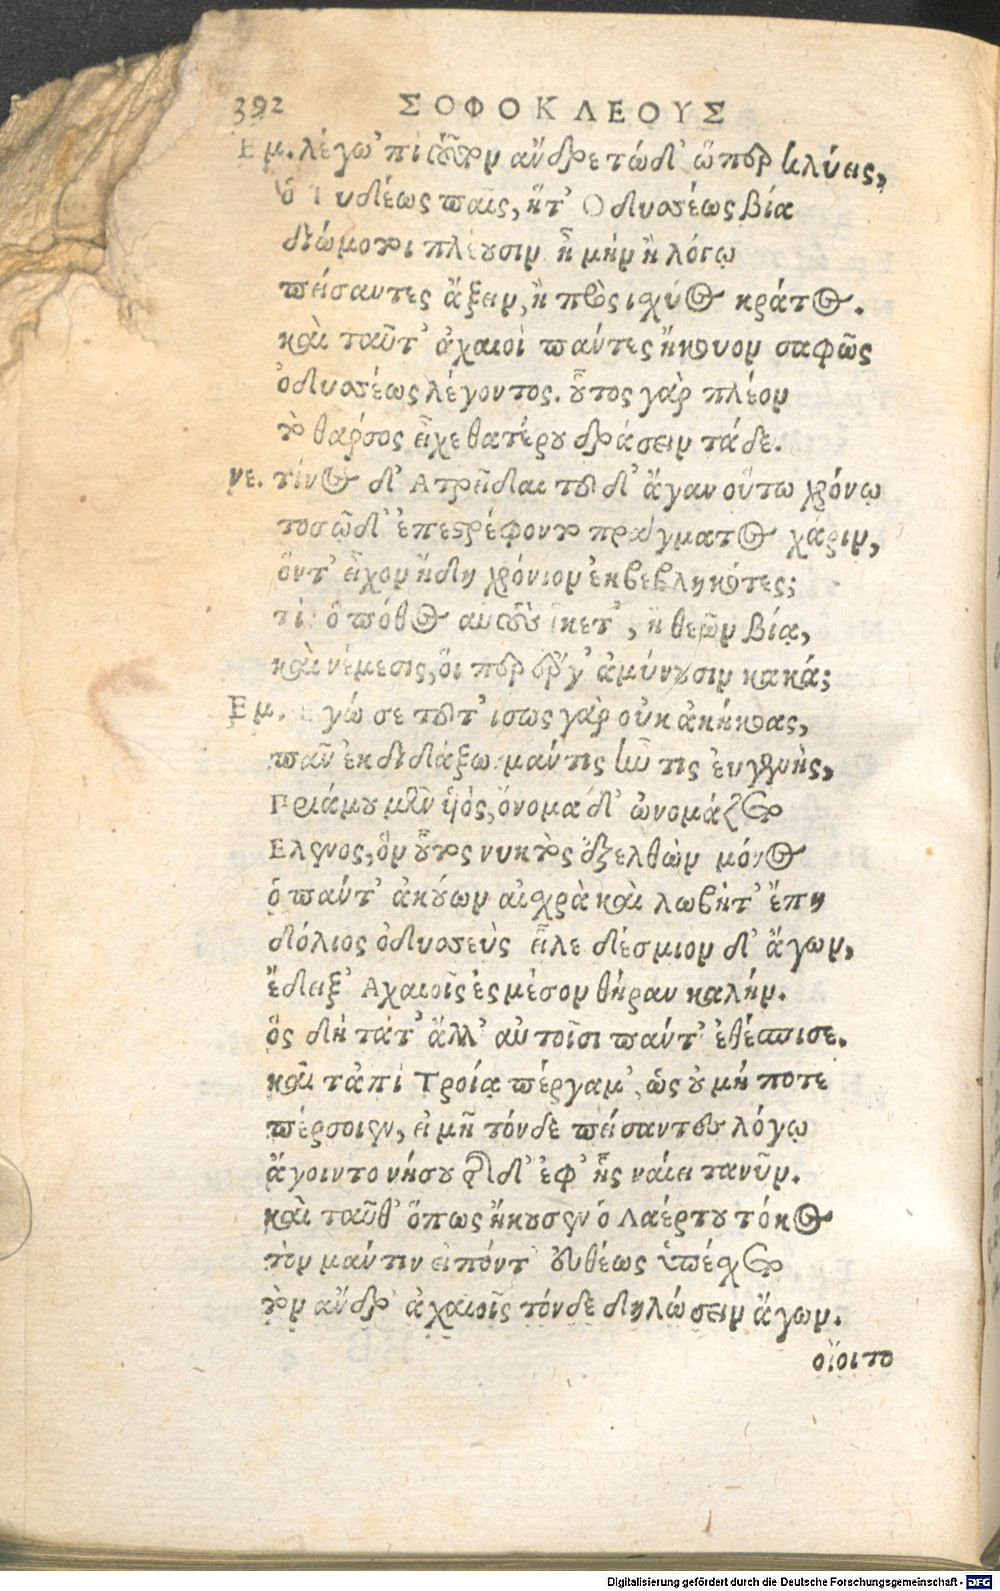 392 ΣΟΦΟΚΛΕΟΥΣ
Εμ. λέγω ’πὶ τοῦτον ἄνδρε τώδ’ ὥπερ κλύεις,
ὁ Τυδέως παῖς, ἥτ’ Οδυσσέως βία
διώμοτοι πλέουσιν ἦ μὴν ἢ λόγῳ
πείσαντες ἄξειν, ἢ πρὸς ἰσχύος κράτος.
καὶ ταῦτ’ ἀχαιοὶ πάντες ἤκουον σαφῶς
ὀδυσσέως λέγοντος. οὗτος γὰρ πλέον
τὸ θαρσος εἶχε θατέρου δράσειν τάδε.
νε. τίνος δ’ Ατρεῖδαι τοῦδ’ ἄγαν οὕτω χρόνῳ
τοσῷδ’ ἐπεστρέφοντο πράγματος χάριν,
ὅντ’ εἶχον ἤδη χρόνιον ἐκβεβληκότες;
τίς ὁ πόθος αὐτοὺς ἵκετ’, ἢ θεῶν βία,
καὶ νέμεσις, οἵπερ ἔργ’ ἀμύνουσιν κακά;
Εμ. Εγώ σε τοῦτ’ ισως γὰρ οὐκ ἀκήκοας,
πᾶν ἐκδιδάξω. μάντις ἦν τις ἐυγενὴς,
Πριάμου μὲν ὑὸς, ὄνομα δ’ ὠνομάζετο
Ελενος, ὃν οὗτος νυκτὸς ἐξελθὼν μόνος
ὁ πάντ’ ἀκούων αἰσχρὰ καὶ λωβήτ’ ἔπη
δόλιος ὀδυσσεὺς εἷλε δέσμιον δ’ ἄγων,
ἔδειξ’ Αχαιοῖς ἐς μέσον θήραν καλήν.
ὃς δὴ τάτ’ ἄλλ’ αὐτοῖσι πάντ’ ἐθέσπισε.
καὶ τἀπὶ Τροίᾳ πέργαμ’, ὡς οὐ μή ποτε
πέρσοιεν, εἰ μὴ τόνδε πείσαντες λόγῳ
ἄγοιντο νήσου τῆσδ’ ἐφ’ ἧς ναίει τανῦν.
καὶ ταῦθ’ ὅπως ἤκουσεν ὁ Λαέρτου τόκος
τὸν μάντιν εἰπόντ’ εὐθέως ὑπέσχετο
τὸν ἄνδρ’ ἀχαιοῖς τόνδε δηλώσειν ἄγων.
οἴοιτο
Digitalisierung gefördert durch die Deutsche Forschungsgemeinschaft - DFG